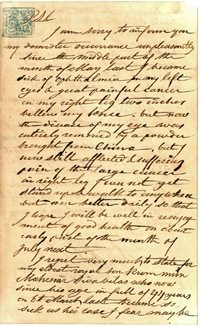 I am sorry to inform you
my domestic occurrence unpleasantly
since the middle part of the
month of May last I became
sick of ophthalmia in my left
eye & great painful cancer
in my right leg two inches
bellow my knee. but now
the disease of my eye was
entirely removed by a powder
brought from China, but I
now still afflicted & suffering
pain of the large cancer
in right leg I can not get
stand up & would to any where
but am better daily so that
I hope I will be well in
ment of good health on about
early week of the month of
July next.
I regret very much to state for
my eldest royal son Krom Mun
Mahesuar Sivavilas who now
since his age in full of 44 years
on 6th March last became so
sick as his case I fear may be